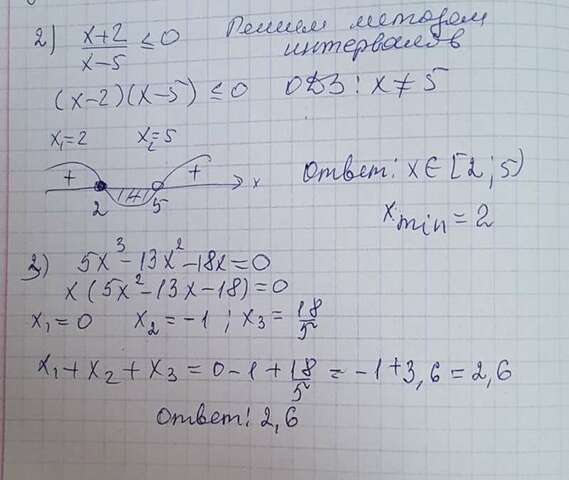 2) (x+2)/(x-5) ≤ 0 Решим методом
интервалов
(x-2)(x-5) ≤ 0 ОДЗ: x ≠ 5
x₁=2 x₂=5
+ - + x
2 5
Ответ: x ∈ [2; 5)
x min = 2
3) 5x³-13x²-18x=0
x(5x²-13x-18)=0
x₁=0 x₂=-1; x₃=18/5
x₁+x₂+x₃=0-1+18/5=-1+3,6=2,6
Ответ: 2,6